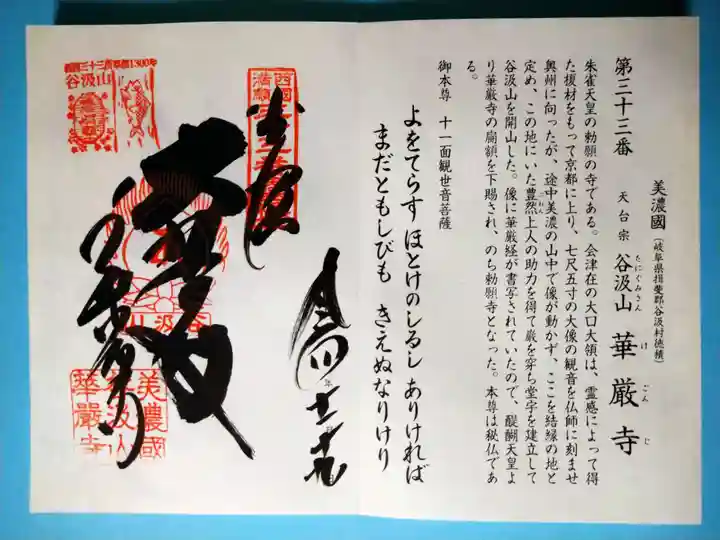 美濃國(岐阜県揖斐郡谷汲村徳積)
第三十三番 天台宗 谷汲山 華厳寺
たにぐみさん けごんじ
朱雀天皇の勅願の寺である。会津在の大口大領は、霊感によって得
た榎材をもって京都に上り、七尺五寸の大像の観音を仏師に刻ませ
奥州に向ったが、途中美濃の山中で像が動かず、ここを結縁の地と
定め、この地にいた豊然上人の助力を得て厳を穿ち堂宇を建立して
谷汲山を開山した。像に華厳経が書写されていたので、醍醐天皇よ
り華厳寺の扁額を下賜され、のち勅願寺となった。本尊は秘仏であ
る。
御本尊 十一面観世音菩薩
よをてらす ほとけのしるし ありければ
まだともしびも きえぬなりけり
西國
満願
谷汲山
美濃國
谷汲山
華嚴寺